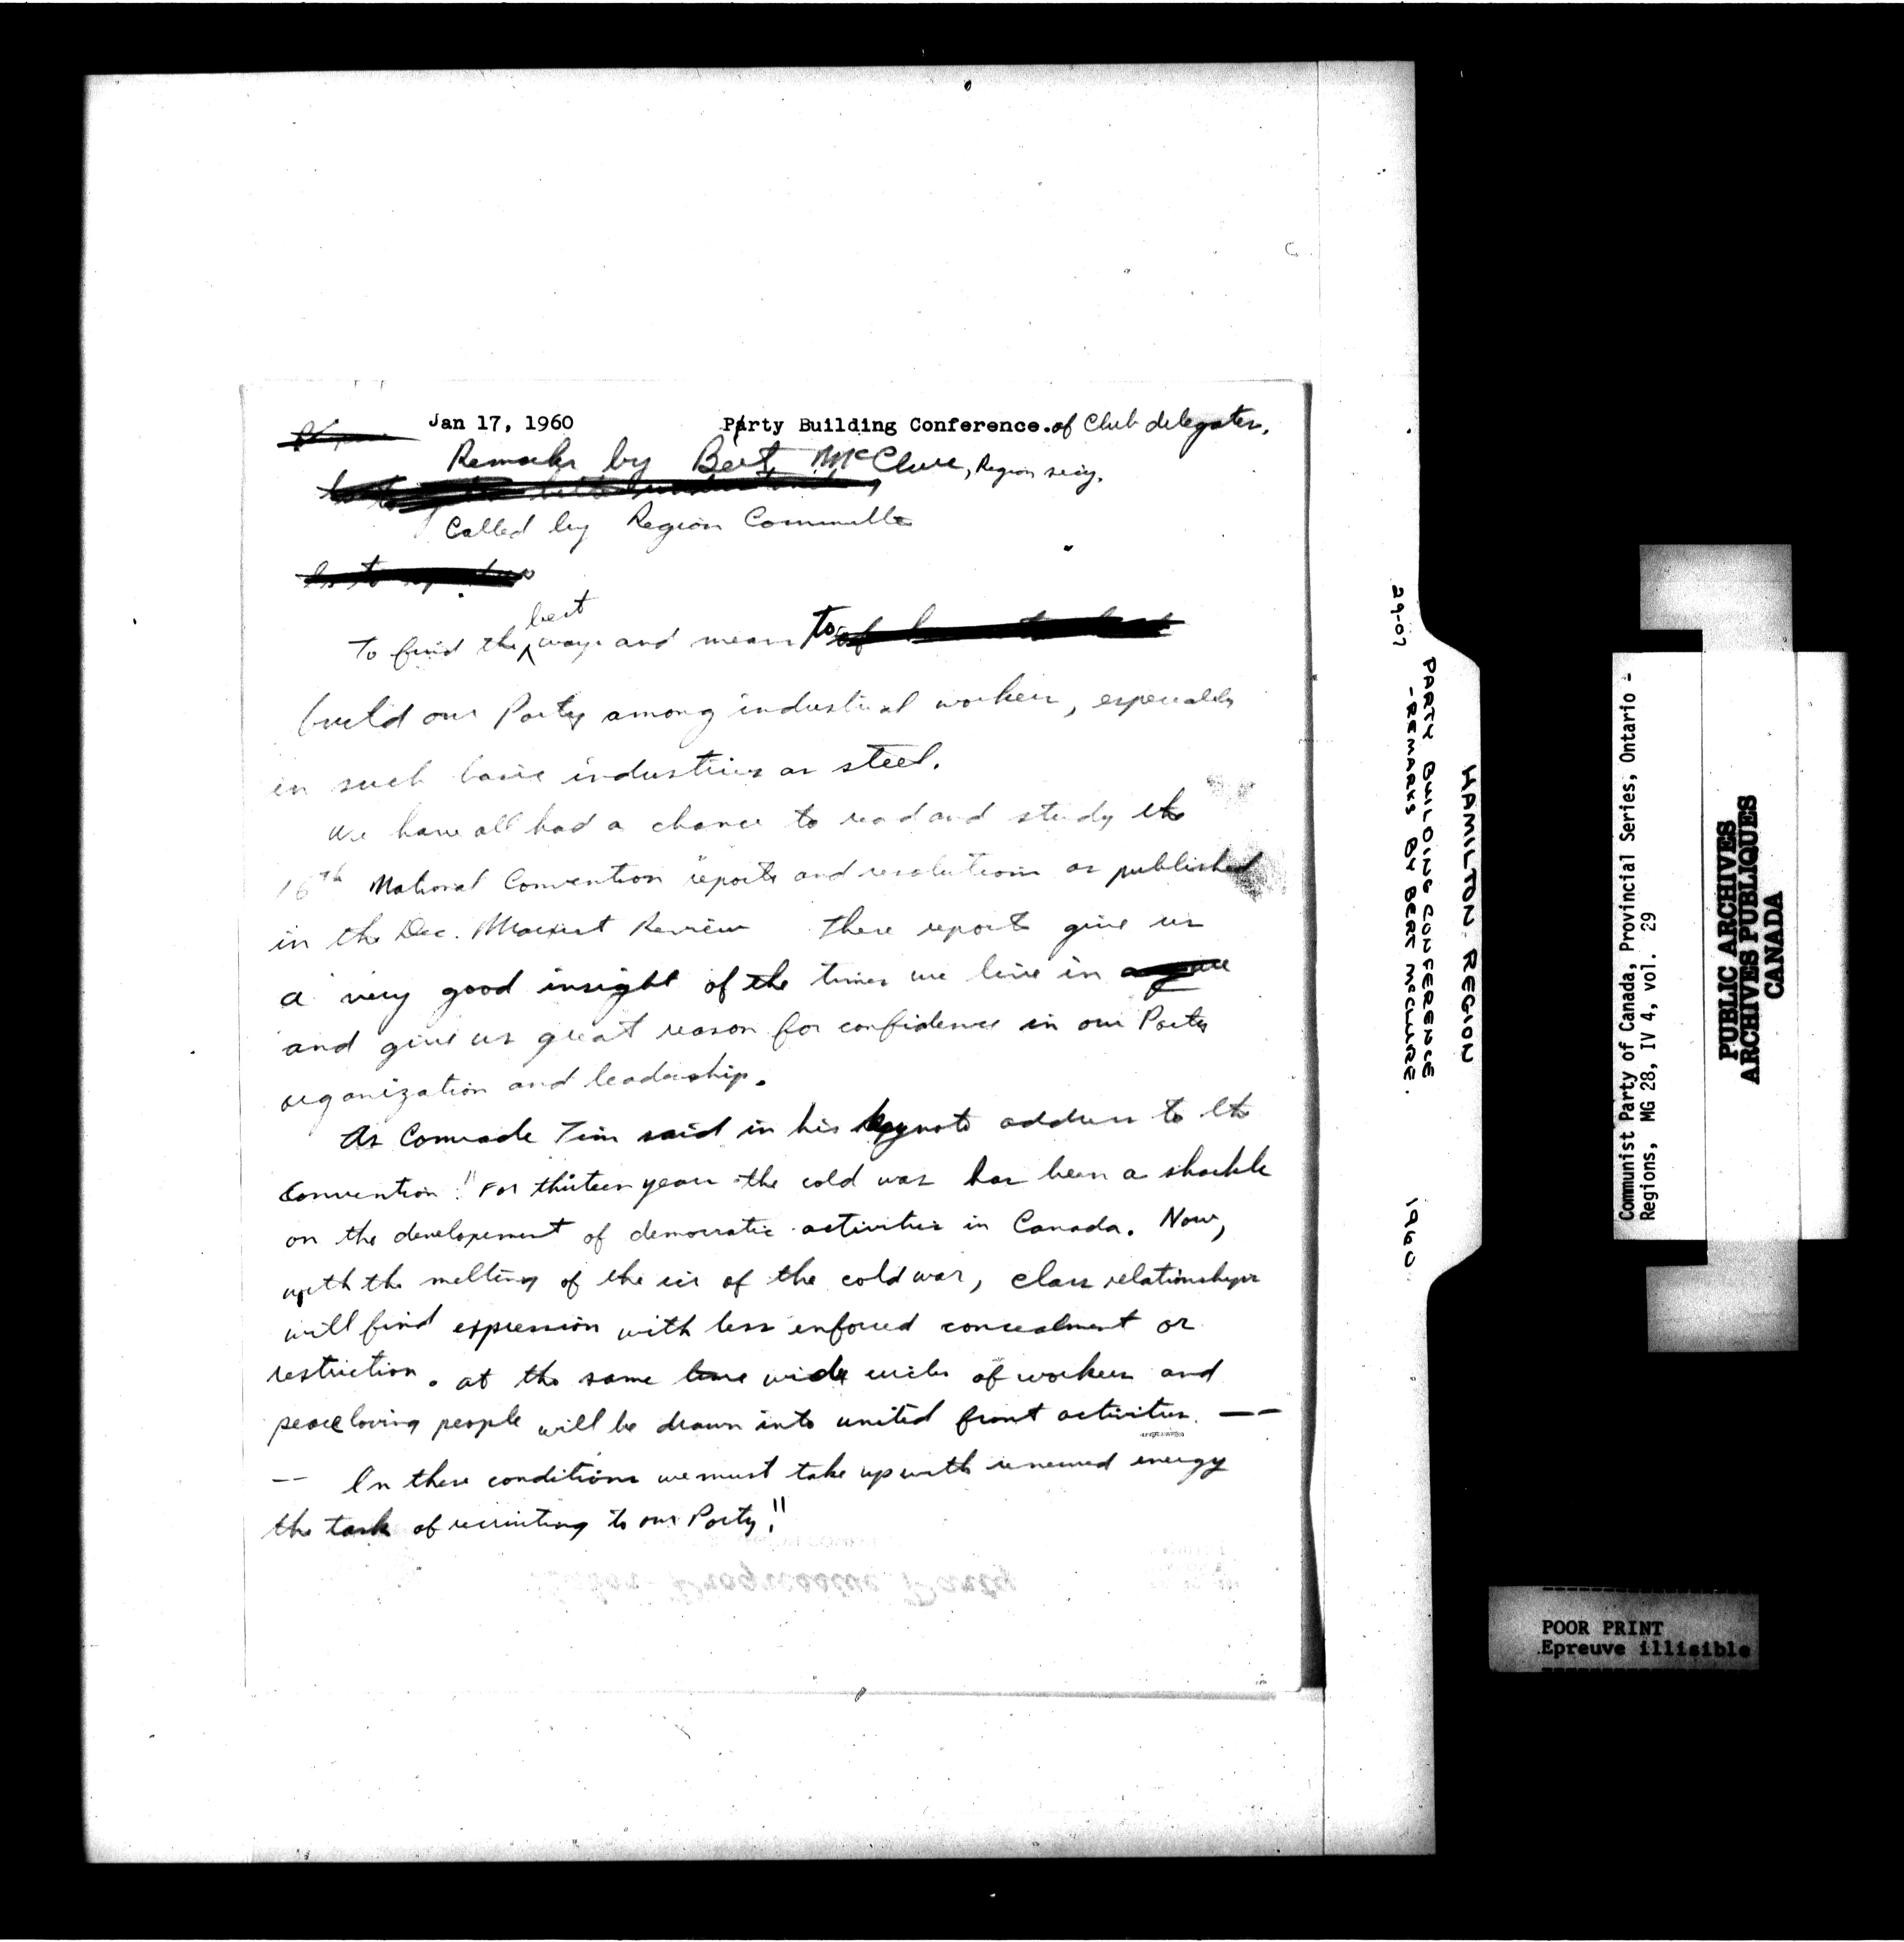 Jan 17, 1960 Party Building Conference. of Club delegates.
Remarks by Bert McClure, Region secy.
Called by Region Committee
best
To find the ways and means to
build our Party among industrial workers, especially
in such basic industries as steel.
We have all had a chance to read and study the
16th National Convention reports and resolutions as published
in the Dec. Marxist Review These reports give us
a very good insight of the times we live in
and give us great reason for confidence in our Party
organization and leadership.
As Comrade Tim said in his keynote address to the
Convention "For thirteen years the cold war has been a shackle
on the developement of democratic activities in Canada. Now,
with the melting of the ice of the cold war, class relationships
will find expression with less enforced concealment or
restriction. at the same time wide circles of workers and
peace loving people will be drawn into united front activities. --
-- In these conditions we must take up with renewed energy
the task of recruiting to our Party."
HAMILTON REGION
PARTY BUILDING CONFERENCE
- REMARKS BY BERT McCLURE.
29-07
1960
Communist Party of Canada, Provincial Series, Ontario -
Regions, MG 28, IV 4, vol. 29
PUBLIC ARCHIVES
ARCHIVES PUBLIQUES
CANADA
POOR PRINT
Epreuve illisible